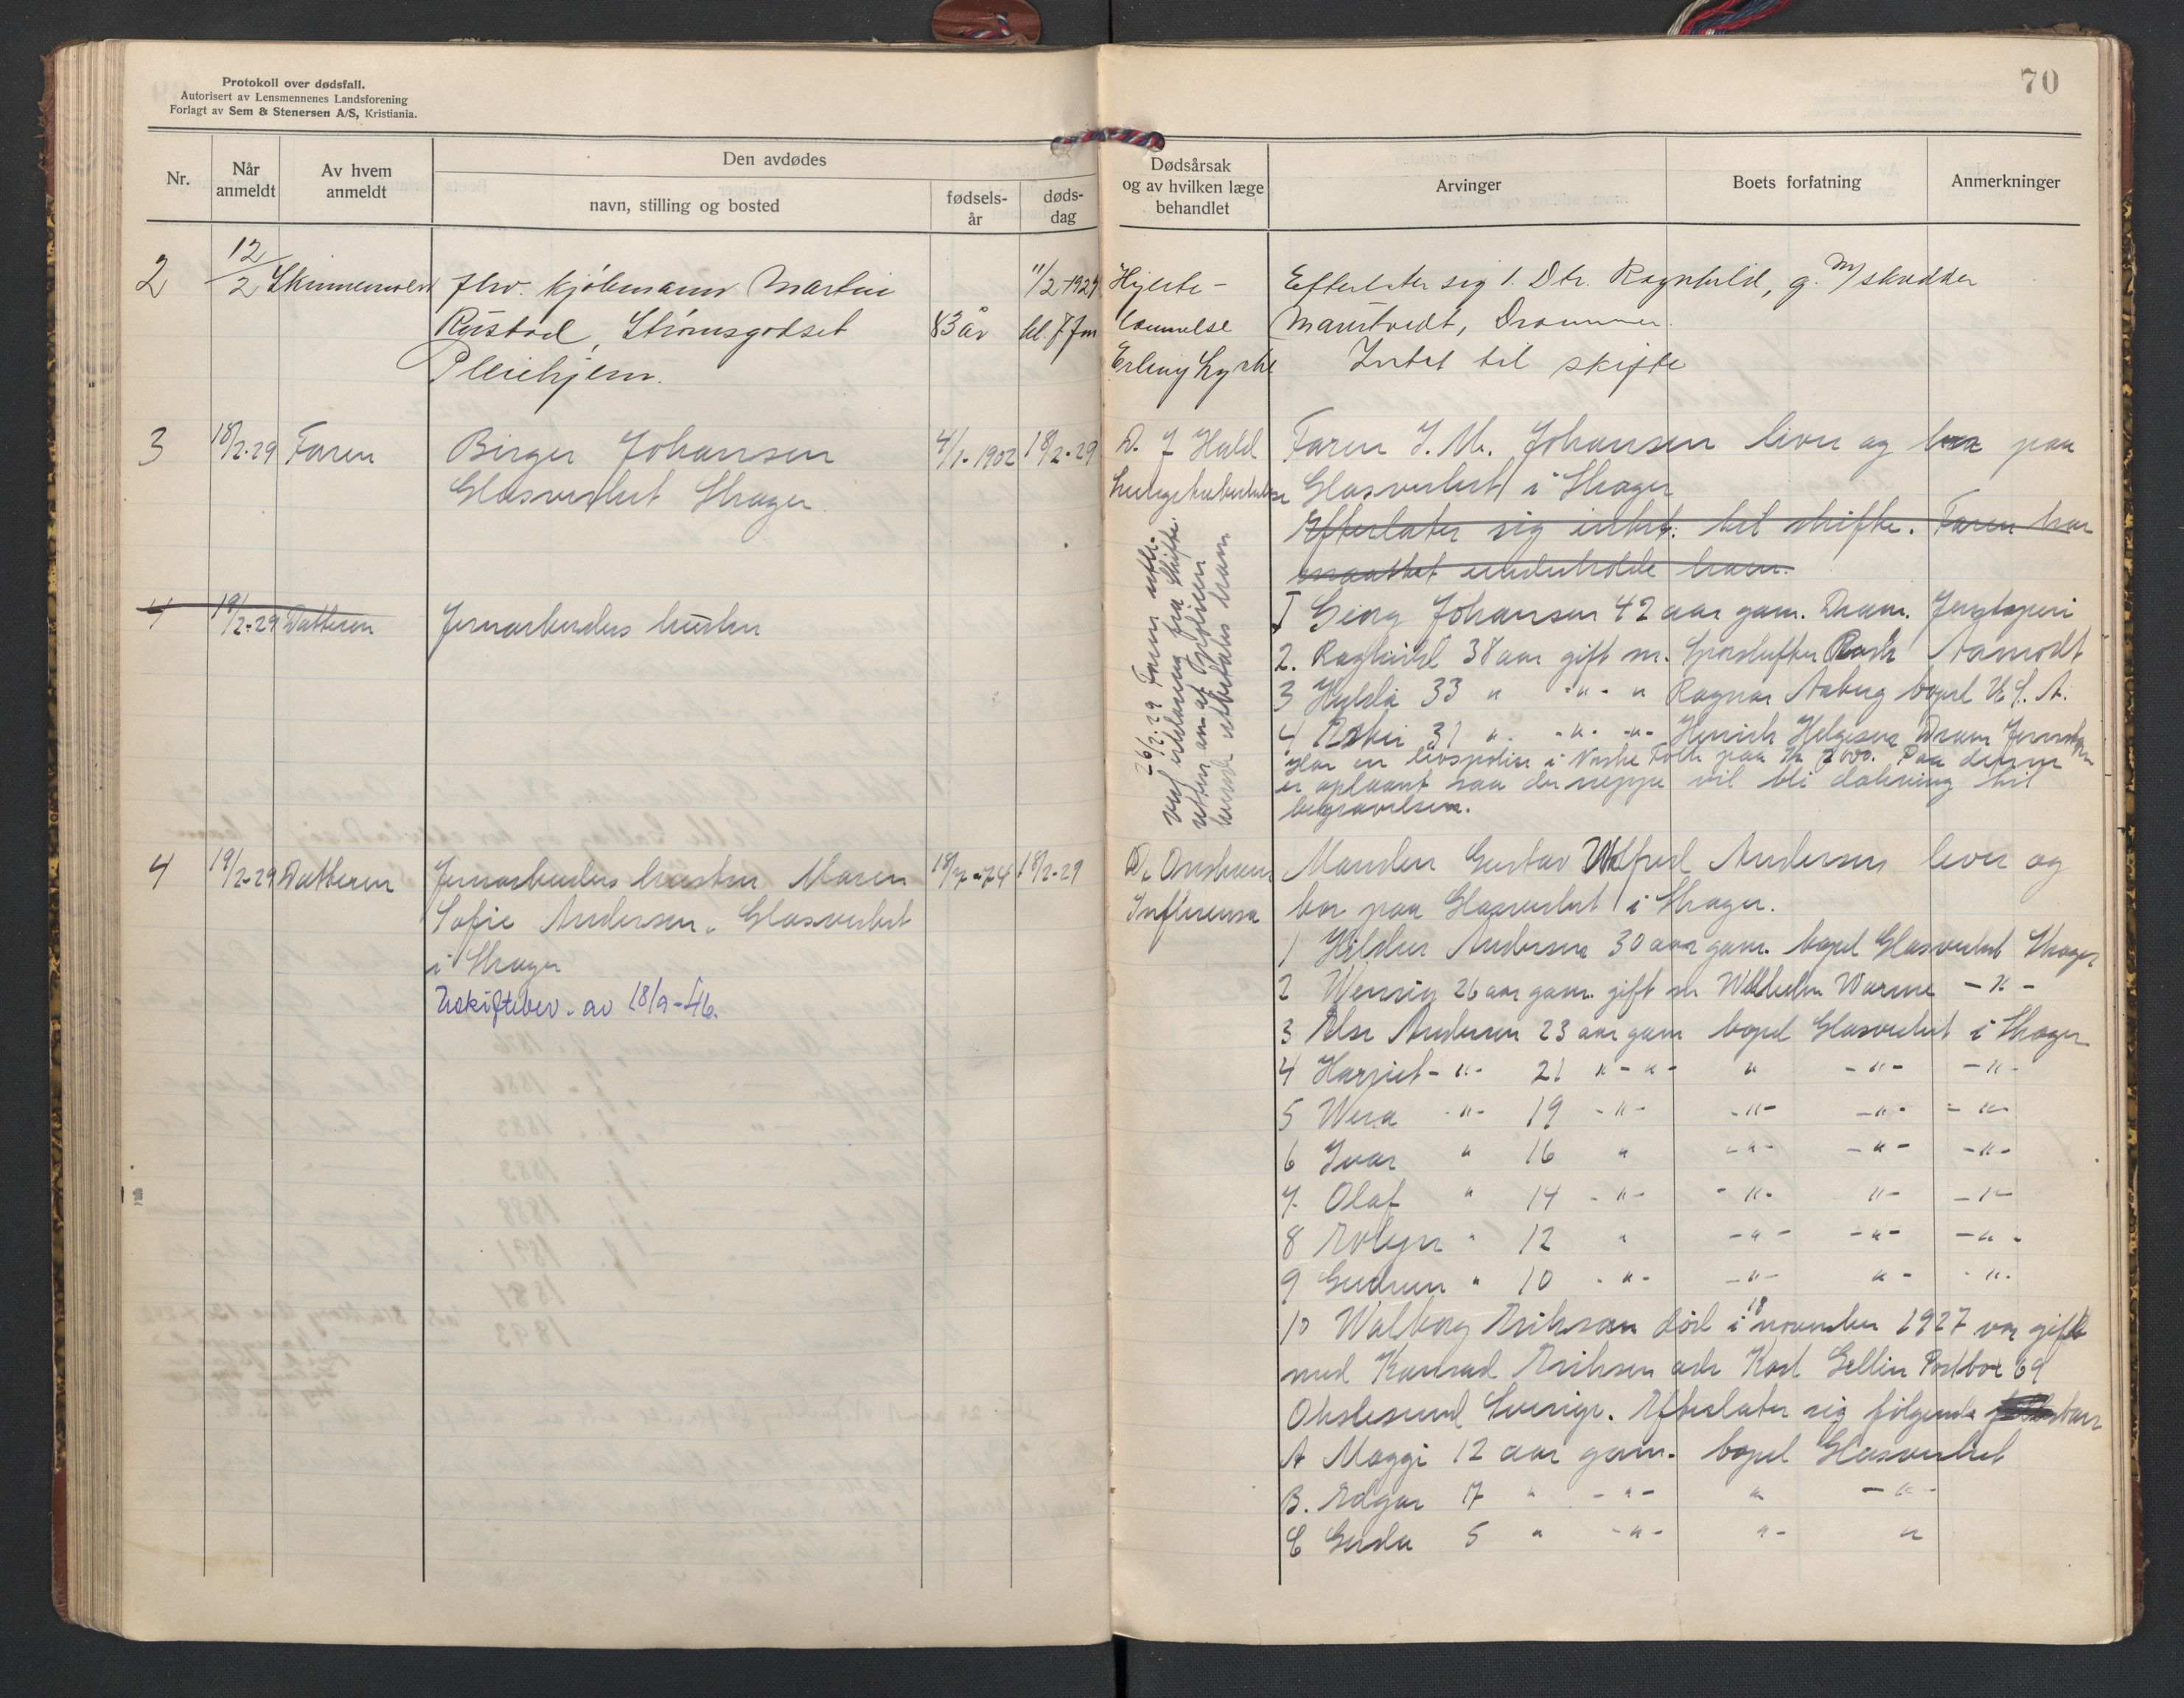 Protokoll over dødsfall.
Autorisert av Lensmennenes Landsforening
Forlagt av Sem & Stenersen A/S, Kristiania.
70
Nr.
Når anmeldt
Av hvem anmeldt
Den avdødes
navn, stilling og bosted
fødsels-år
døds-dag
Dødsårsak og av hvilken læge behandlet
Arvinger
Boets forfatning
Anmerkninger
2 12/2 fhv. kjøbmann Martin 11/2-1929
Rustad, Strømsgodset 83 år kl. 7 fm
Pleiehjem.
Hjerte-
lammelse
Erling
Efterlater sig 1. Dtr. Ragnhild, g. m/ skredder
Drammen.
Intet til skifte
3 18/2-29 Faren Birger Johansen 4/1-1902 18/2-29
Glasverket Skoger.
Dr. J Hald
Lungetuberkulose
26/2-29 Faren
Faren J. M. Johansen lever og bor paa
Glasverket i Skoger
Efterlater sig intet til skifte. Faren har
maattet underholde ham.
1 Georg Johansen 42 aar gam. Dram. Jernstøperi
2. Raghnild 38 aar gift m. Aamodt
3 Hilda 33 " -"- " Ragnar Aaberg bopel U.S.A.
4 31 " -"- -"- Henrik Helgesen Dram
Har en livspolise i Norske Folk paa Kr. Paa denne
er oplaant saa der neppe vil bli dækning til
begravelsen.
4 19/2-29 Datteren Jernarbeiders hustru
4 19/2-29 Datteren Jernarbeiders hustru Maren 18/2-29
Sofie Andersen. Glasverket
i Skoger
Uskiftebev. av 18/9-46.
Influensa
Manden Gustav Wilfred Andersen lever og
bor paa Glasverket i Skoger.
1 Andersen 30 aar gam. bopel Glasverket Skoger
2 26 aar gam. gift m Wilhelm Warme -"-
3 Else Andersen 23 aar gam bopel Glasverket i Skoger
4 Harriet -"- 21 " -"- " -"- -"-
5 Wera -"- 19 -"- -"- -"- -"-
6 Ivar " 16 " -"- -"- -"-
7. Olaf " 14 -"- -"- "- -"-
8 " 12 " -"- -"- -"-
9 Gudrun " 10 -"- -"- "- -"-
10 Walborg Eriksen død i 18 november 1927 var gift
med Konrad Eriksen adr Karl Gellin Postbox 69
Sverige. Efterlater sig følgende barn
A Maggi 12 aar gam. bopel Glasverket
B. Edgar " -"- " -"-
C Gerda 5 " -"- "- "